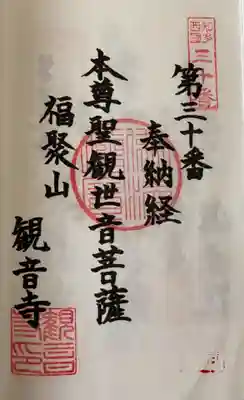 三十番
第三十番
奉納経
本尊聖観世音菩薩
福聚山
観音寺